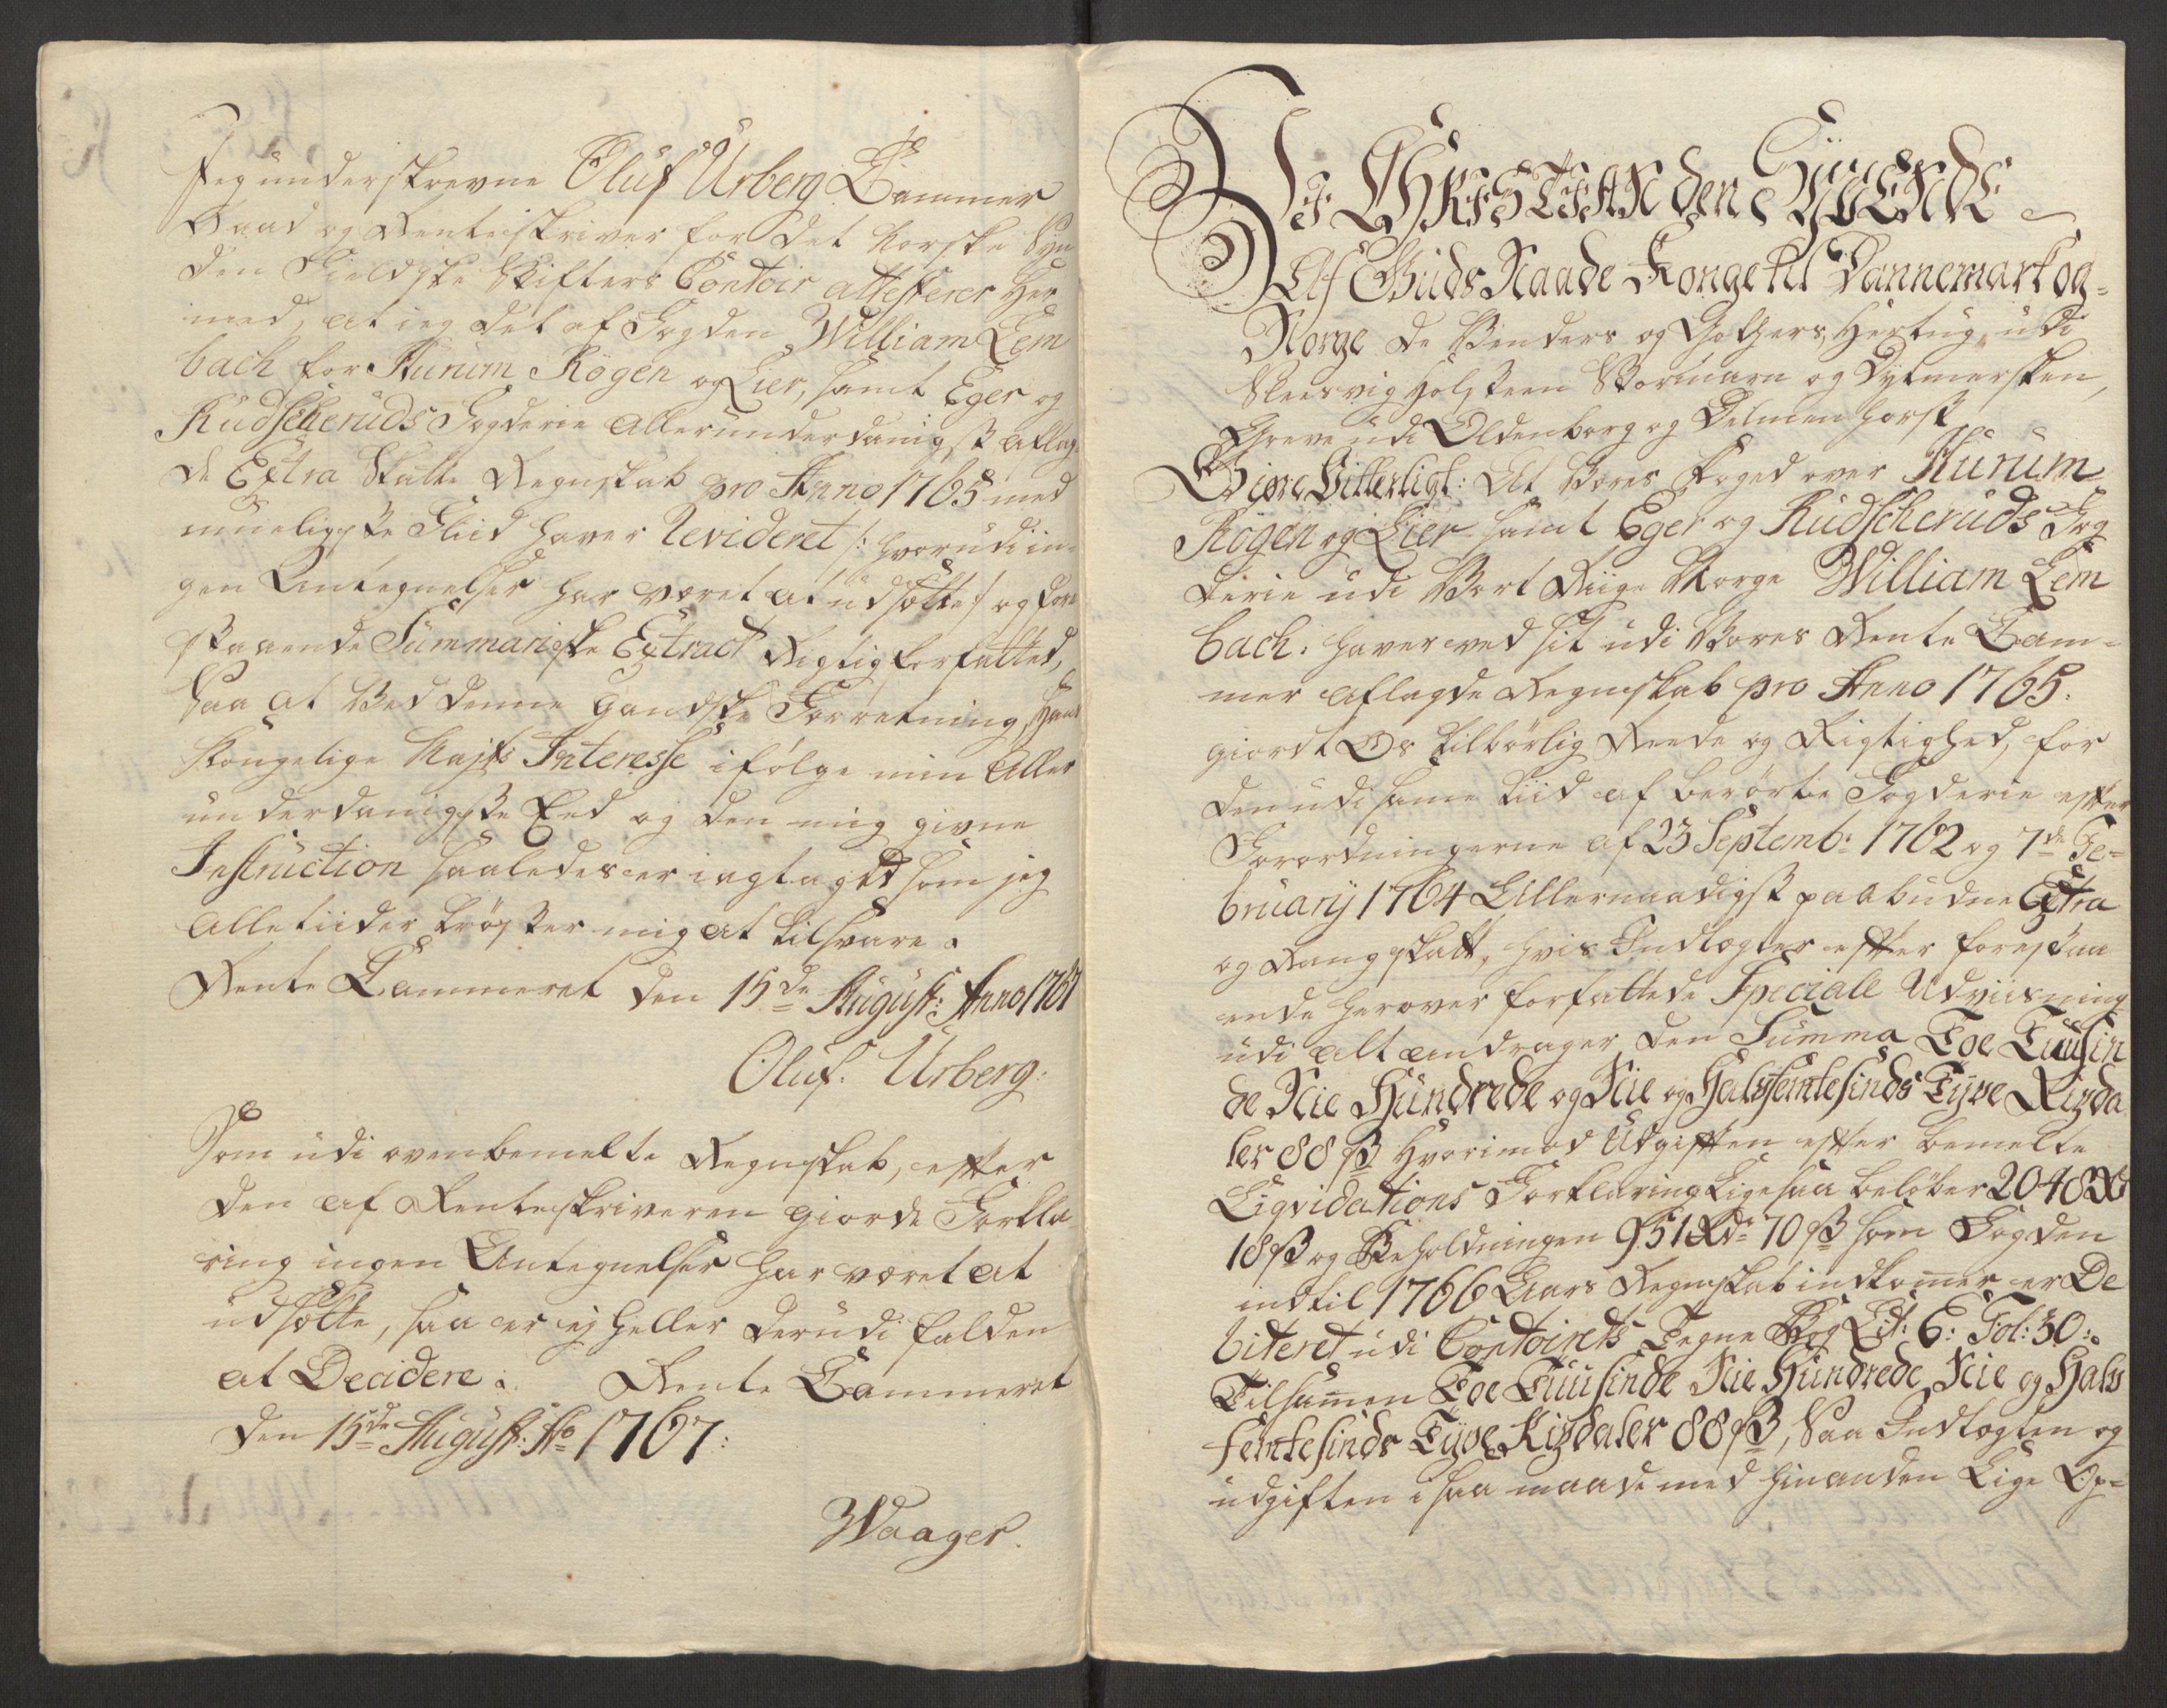 Jeg underskrevne Oluf Urberg Cammer
Raad og Renteskriver for det Norske Syn
den Fieldske Stifters Contoir attesterer her
med, at jeg det af Fogden William Lem
bach for Hurum Røgen og Lier, samt Eger og
Rudscheruds Fogderie Allerunderdanigst aflag
de Extra Skatte Regnskab pro Anno 1765 med
mueligste Fliid haver Revideret /: hvorudi in-
gen Antegnelser har været at udsætte :/ og fore
staaende Summariske Extract Rigtig forfattet,
Saa at Ved denne gandske Forretning, Hans
Kongelige Majts: Interesse i følge min Aller
underdanigste Eed og den mig givne
Instruction saaledes er iagtaget som jeg
Alle tiider trøster mig at tilsvare.
Rente Cammeret den 15de August: Anno 1767
Oluf. Urberg.
Som udi ovenbemelte Regnskab, efter
den af Renteskriveren giorde Forkla
ring ingen Antegnelser har været at
udsætte, saa er ej heller derudi falden
at Decidere. Rente Cammeret
den 15de August: Ao 1767:
Waager.
Vi CHRISTIAN den Syvende
Af Guds Naade Konge til Dannemark og
Norge de Venders og Gothers, Hertug udi
Slesvig Holsteen Stormarn og Dytmersken,
Greve udi Oldenborg og Delmenhorst
Giøre Vitterligt: At Vores Foged over Hurum
Røgen og Lier samt Eger og Rudscheruds Fog
derie udi Vort Riige Norge William Lem
bach. haver ved sit udi Vores Rente Cam-
mer aflagde Regnskab pro Anno 1765.
giordt Os tilbørlig Reede og Rigtighed, for
den udi samme tiid af berørte Fogderie efter
Forordningerne af 23 Septemb: 1762 og 7de Fe-
bruarij 1764 Allernaadigst paabudne Extra
og Rangskatt, hvis Indtægter efter forestaa
ende herover forfattede Speciale Udviisning
udi alt andrager den Summa Toe Tuusin
de Nie Hundrede og Nie og Halvfemtesinds Tyve Rixda
ler 88 ß Hvorimod Udgiften efter bemelte
Liqvidations Forklaring Ligesaa beløber 2048 Rd
18 ß og Beholdningen 951 Rdr 70 ß som Fogden
indtil 1766 Aars Regnskab indkommer er De
biteret udi Contoirets Tegne Bog Lit: C: Fol: 30:
Tilsammen Toe Tuusinde Nie Hundrede Nie og Halv
femtesinds Tyve Rixdaler 88 ß, Saa Indtægten og
udgiften i saa maade med hinanden Lige Op-